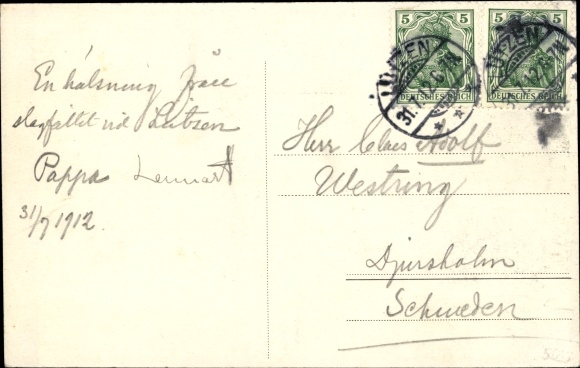 En hälsning från
slagfältet vid Lützen
Pappa Lennart
31/7 1912
5 5
DEUTSCHES REICH DEUTSCHES REICH
LÜTZEN
31.7.12.6-7N
Herr Claes Adolf
Westring
Djursholm
Schweden